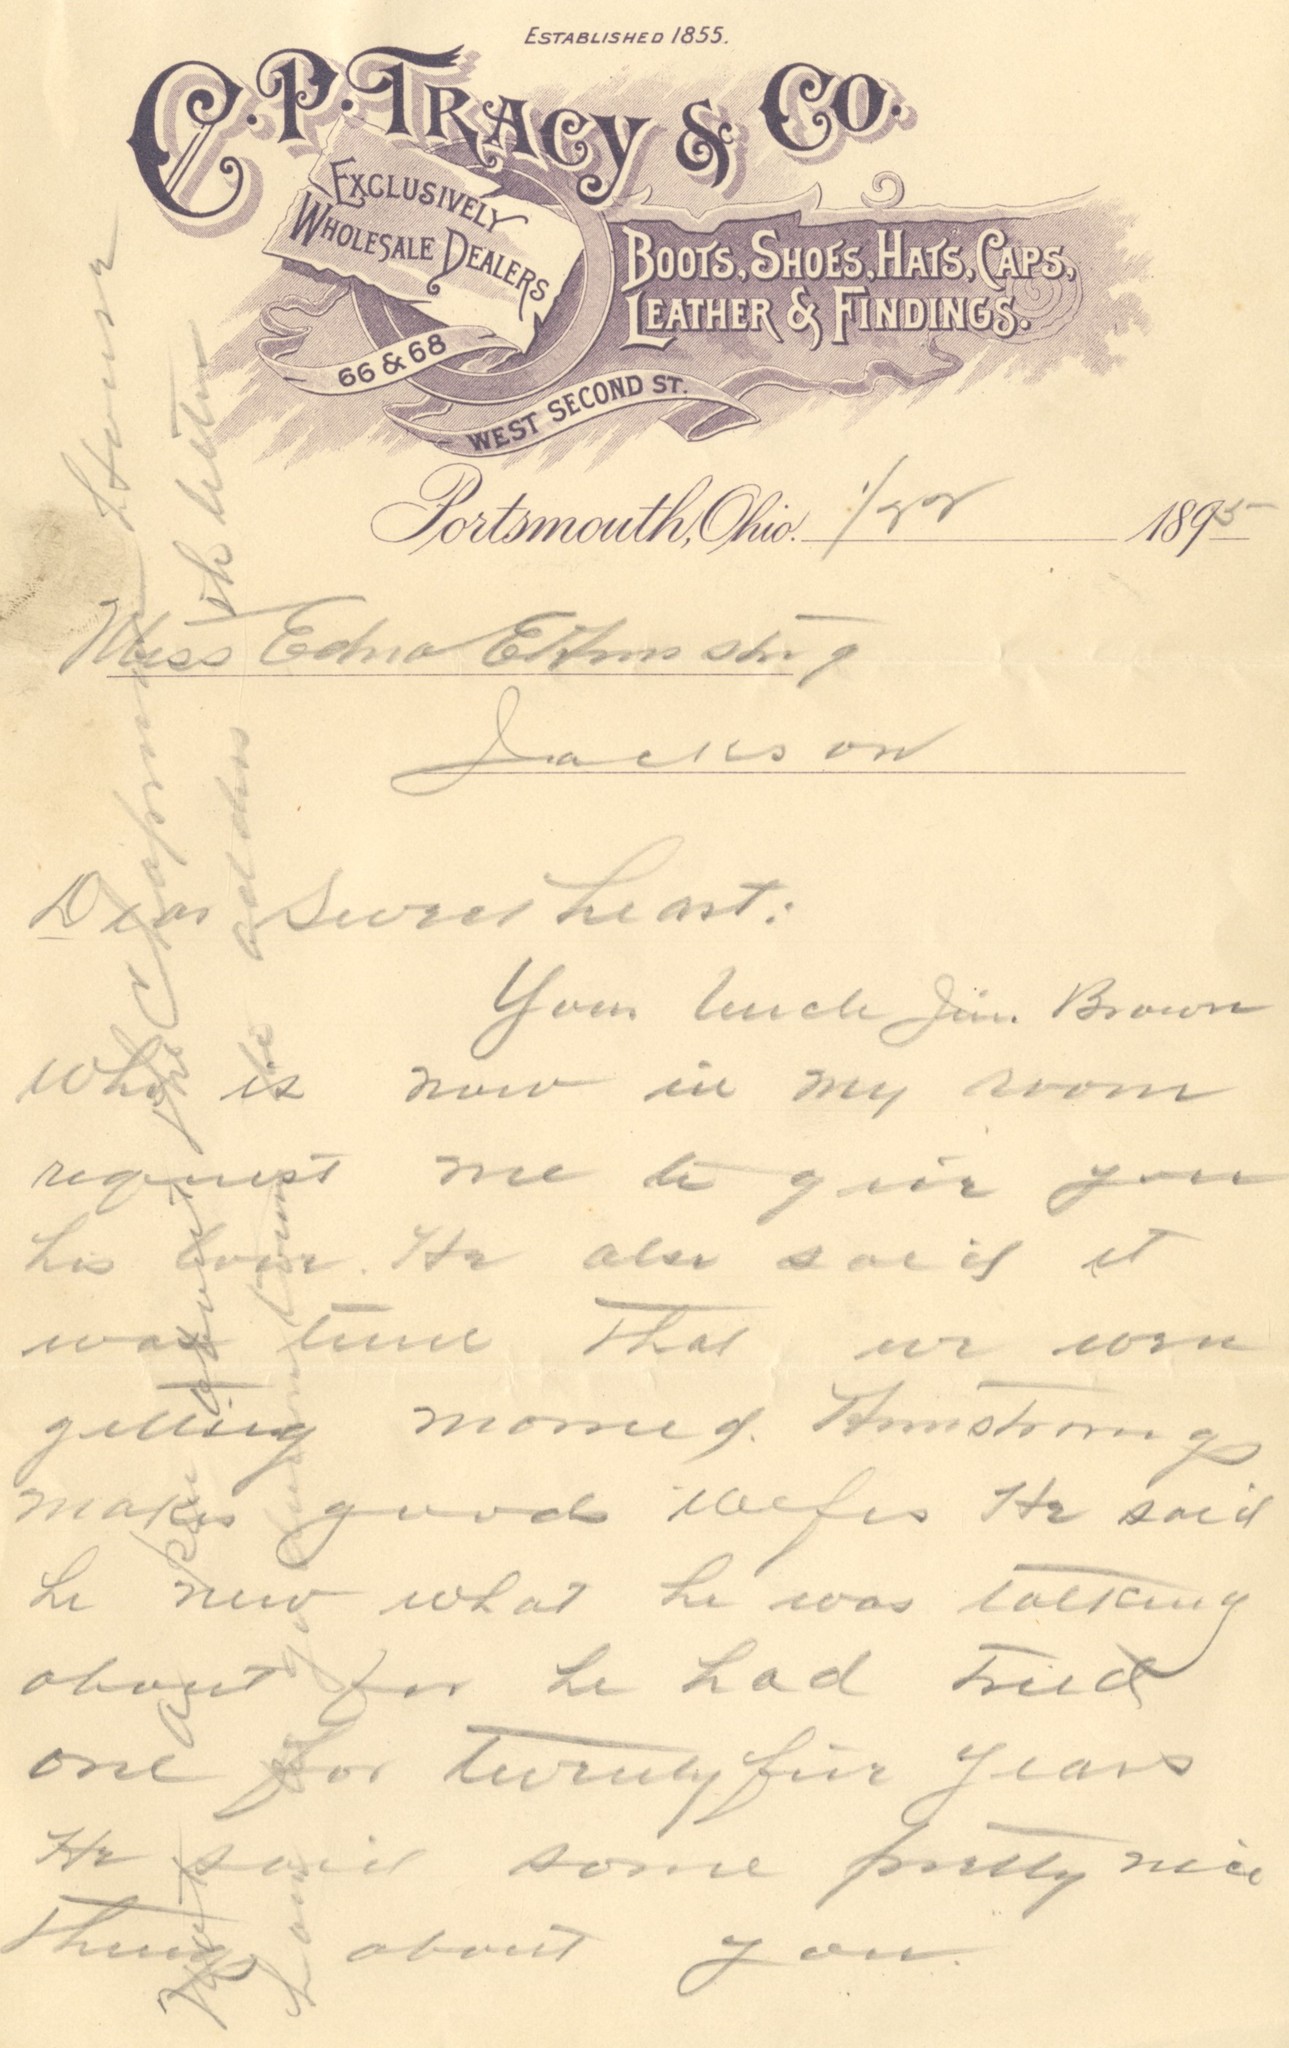 ESTABLISHED 1855.
C. P. TRACY & CO.
EXCLUSIVELY
WHOLESALE DEALERS
BOOTS, SHOES, HATS, CAPS,
LEATHER & FINDINGS.
66 & 68
WEST SECOND ST.
Portsmouth, Ohio. 1/22 1895
Miss Edna E Armstrg
Jackson
Dear Sweetheart:
Your Uncle Jim Brown
Who is now in my room
request me to give you
his love. He also said it
was time that we were
getting married. Armstrongs
makes good wifes He said
he new what he was talking
about for he had tried
one for twenty five years
He said some pretty nice
things about you.
Not a about the Chapman House
to address letter